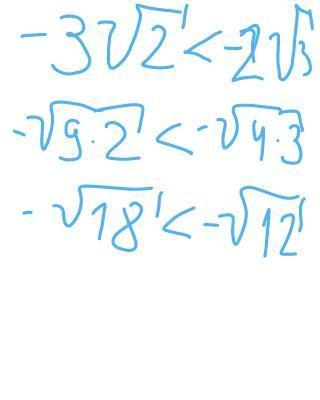 -3√2 < -2√3
-√9·2 < -√4·3
-√18 < -√12